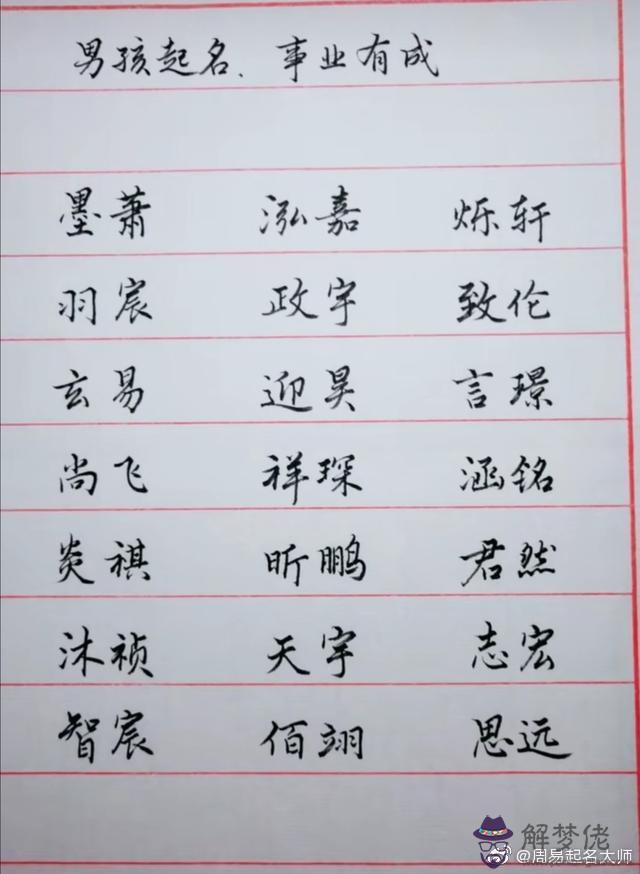 男孩起名、事业有成
墨萧 泓嘉 烁轩
羽宸 政宇 致伦
玄易 迎昊 言璟
尚飞 祥琛 涵铭
炎祺 昕鹏 君然
沐祯 天宇 志宏
智宸 佰翊 思远
解梦佬
@周易起名大师